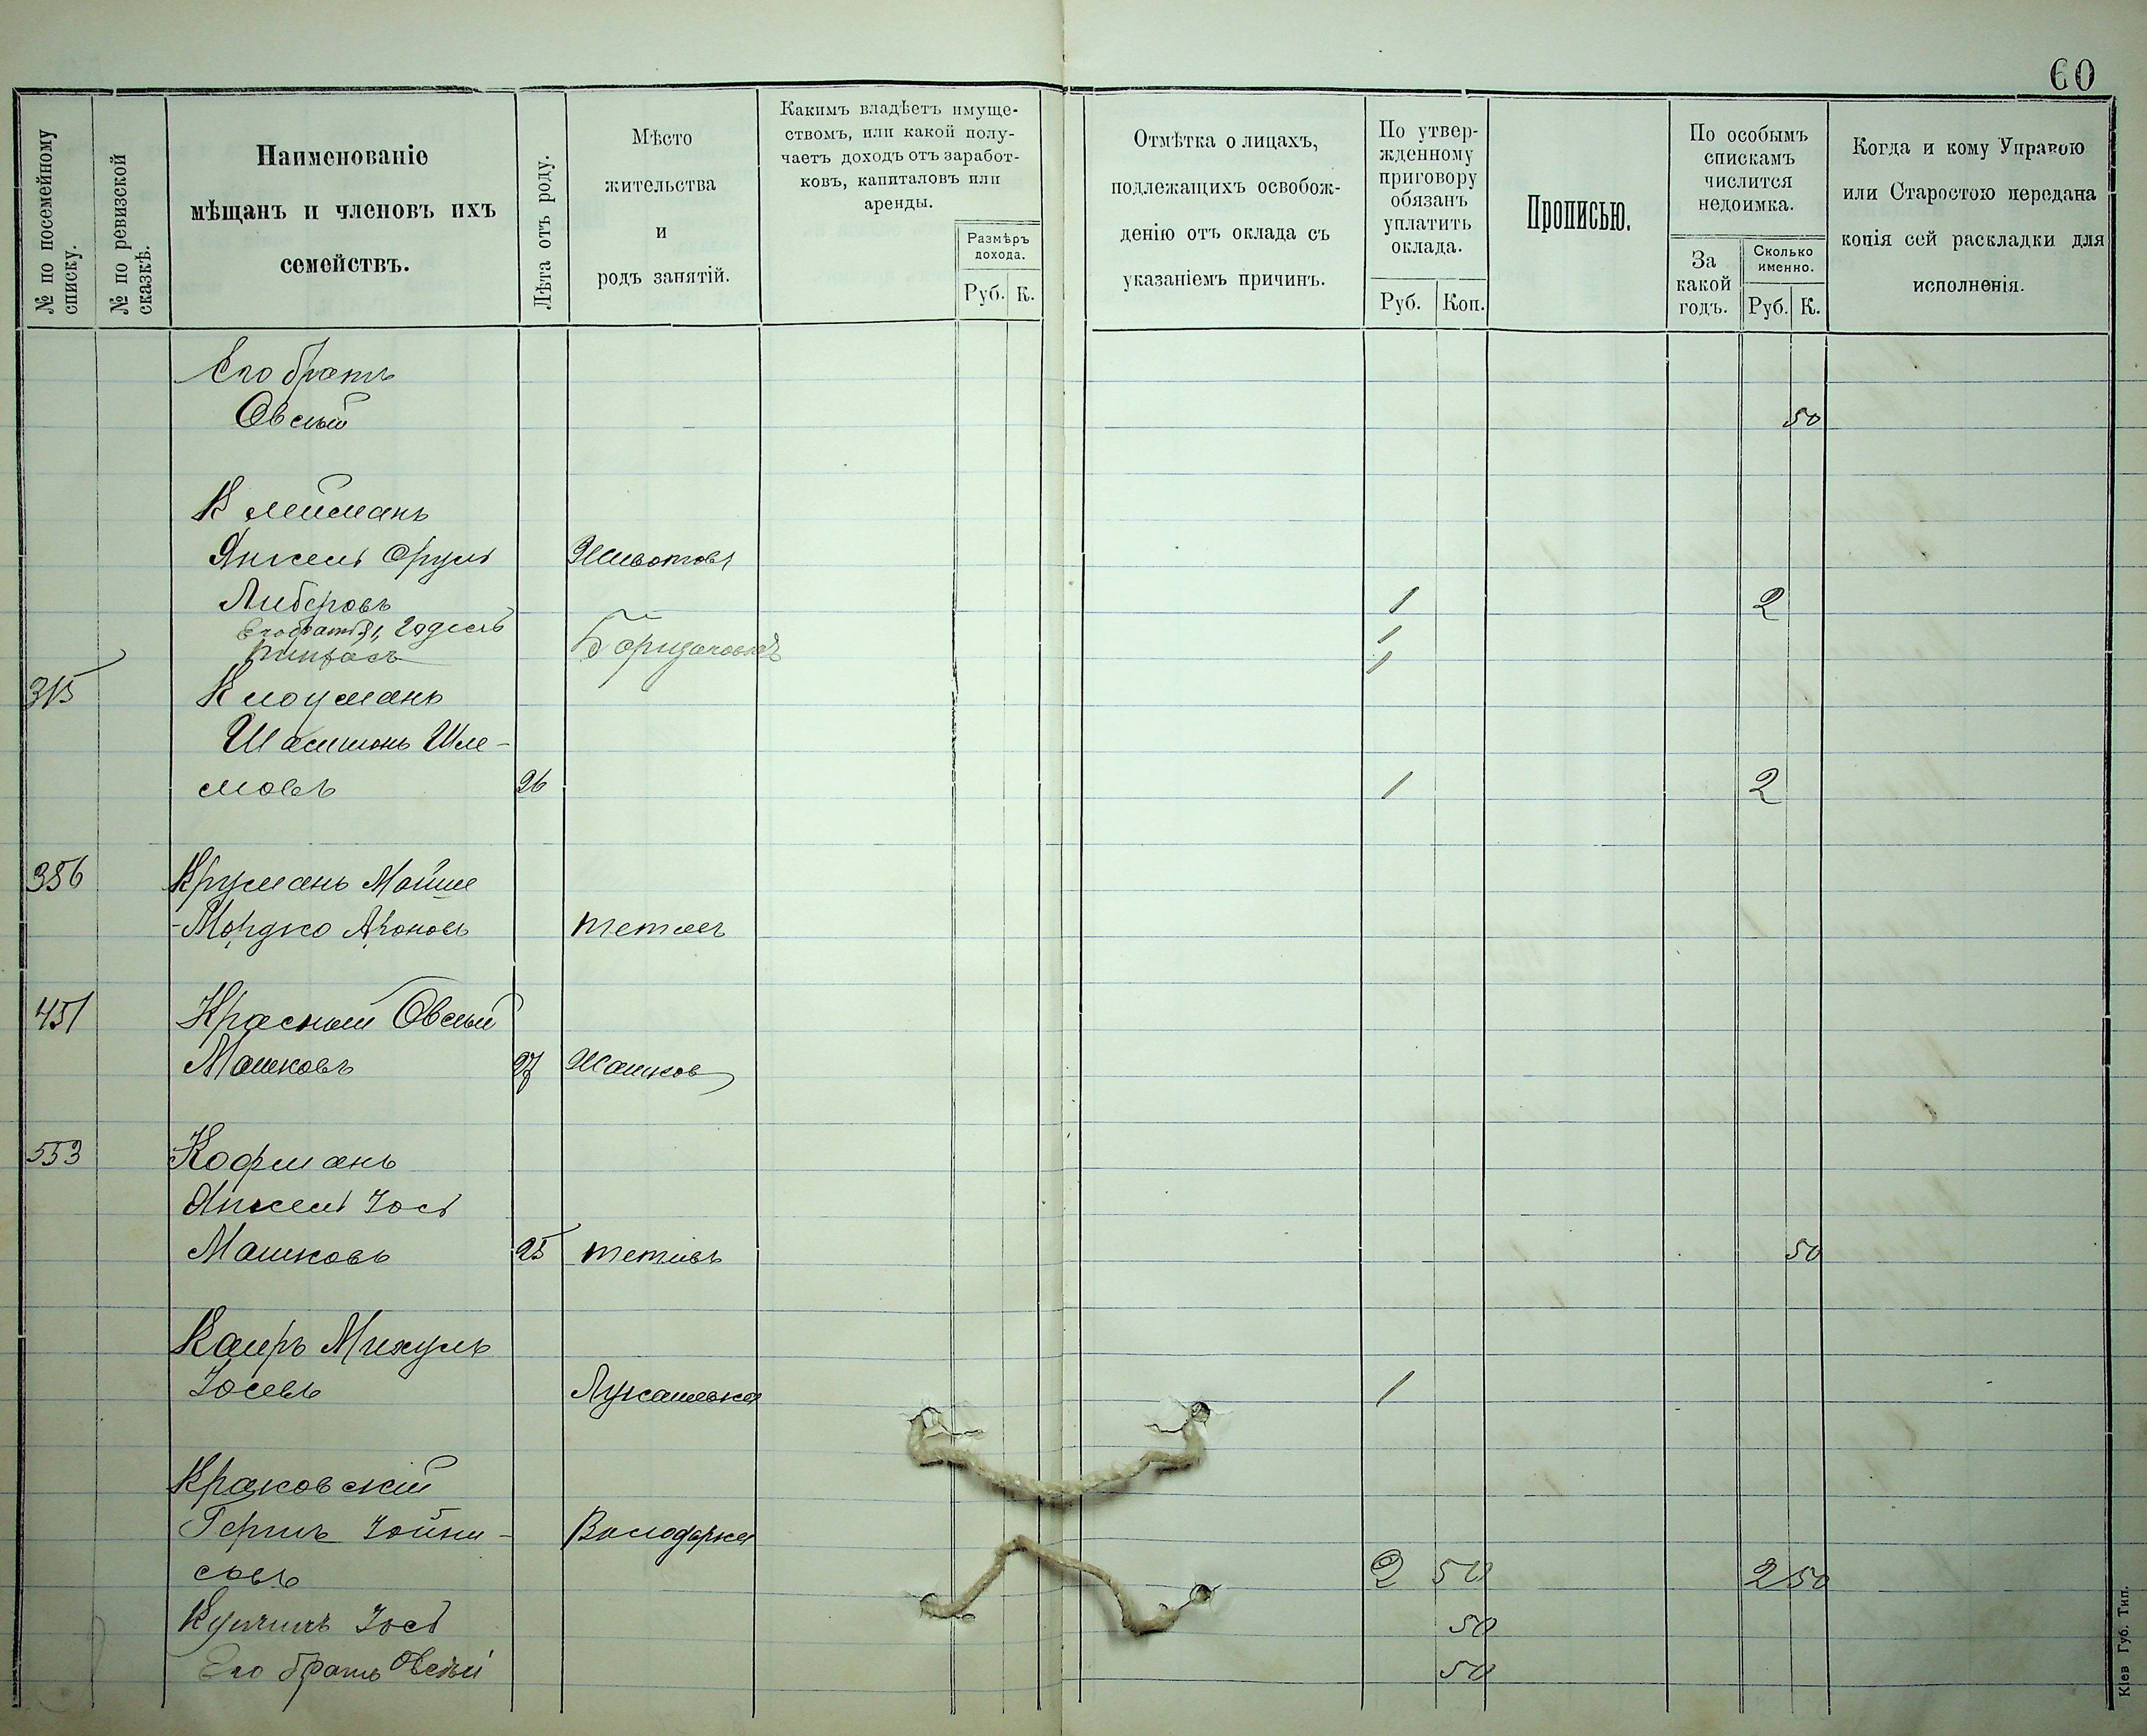 60
№ по посемейному
списку.
№ по ревизской
сказкѣ.
Наименованіе
мѣщанъ и членовъ ихъ
семействъ.
Лѣта отъ роду.
Мѣсто
жительства
и
родъ занятій.
Какимъ владѣетъ имуще-
ствомъ, или какой полу-
чаетъ доходъ отъ заработ-
ковъ, капиталовъ или
аренды.
Размѣръ
дохода.
Руб. К.
Отмѣтка о лицахъ,
подлежащихъ освобож-
денію отъ оклада съ
указаніемъ причинъ.
По утвер-
жденному
приговору
обязанъ
уплатить
оклада.
Руб. Коп.
Прописью.
По особымъ
спискамъ
числится
недоимка.
За
какой
годъ.
Сколько
именно.
Руб. К.
Когда и кому Управою
или Старостою передана
копія сей раскладки для
исполненія.
Его братъ
Овсѣй 50
Клейманъ
Янкель Сруль Животовъ
Либеровъ 1 2
Его братья, Годель 1
Пинхасъ 1
315 Клоцманъ
Шамшонъ Шле-
мовъ 26 1 2
386 Круманъ Мойше
-Мордко Ароновъ
451 Красный Овсѣй
Машковъ 27 Жашков
553 Кофманъ
Янкель Іось
Машковъ 25 Тетіевъ 50
Кацръ Михуль
Іосевъ Лукашевка 1
Краковскій
Гершъ Іойни- Володарка
совъ 2 50 2 50
Іось 50
Его братъ Овсѣй 50
Кіев Губ. Тип.